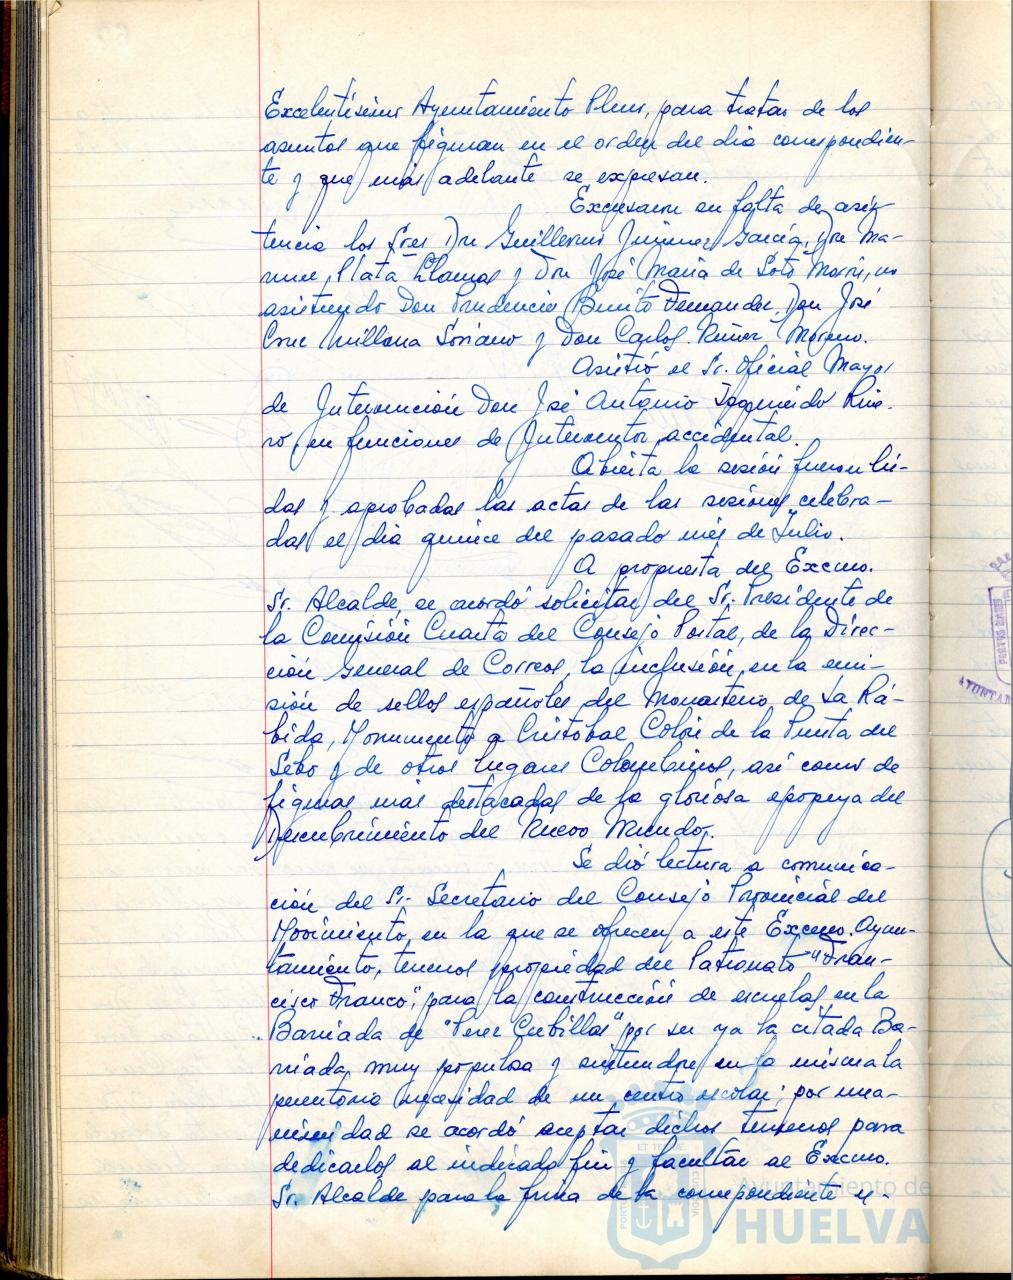 Excelentísimo Ayuntamiento Pleno, para tratar de los
asuntos que figuran en el orden del dia correspondien-
te y que más adelante se expresan.
Excusaron su falta de asis
tencia los Sres Don Guillermo Jimenez García, Don Ma-
nuel Plata Llamas y Don José Maria de Soto Morón, no
asistiendo Don Prudencio Benito Fernandez, Don José
Cruz Millana Soriano y Don Carlos Núñez Moreno.
Asistió el Sr. Oficial Mayor
de Intervención Don José Antonio Izquierdo Rive-
ro, en funciones de Interventor accidental.
Abierta la sesión fueron leí-
das y aprobadas las actas de las sesiones celebra-
das el dia quince del pasado mes de Julio.
A propuesta del Excmo.
Sr. Alcalde, se acordó solicitar del Sr. Presidente de
la Comisión Cuarta del Consejo Postal, de la Direc-
ción General de Correos, la inclusión, en la emi-
sión de sellos españoles del Monasterio de La Rá-
bida, Monumento a Cristóbal Colón de la Punta del
Sebo y de otros lugares Colombinos, así como de
figuras más destacadas de la gloriosa epopeya del
Descubrimiento del Nuevo Mundo.
Se dió lectura a comunica-
ción del Sr. Secretario del Consejo Provincial del
Movimiento, en la que se ofrecen a este Excmo. Ayun-
tamiento, terrenos propiedad del Patronato "Fran-
cisco Franco", para la construcción de escuelas, en la
Barriada de "Perez Cubillas" por ser ya la citada Ba-
rriada, muy populosa y sentirse en la misma la
perentoria necesidad de un centro escolar; por una-
nimidad se acordó aceptar dichos terrenos para
dedicarlos al indicado fin y facultar al Excmo.
Sr. Alcalde para la firma de la correspondiente es-
Ayuntamiento de
HUELVA